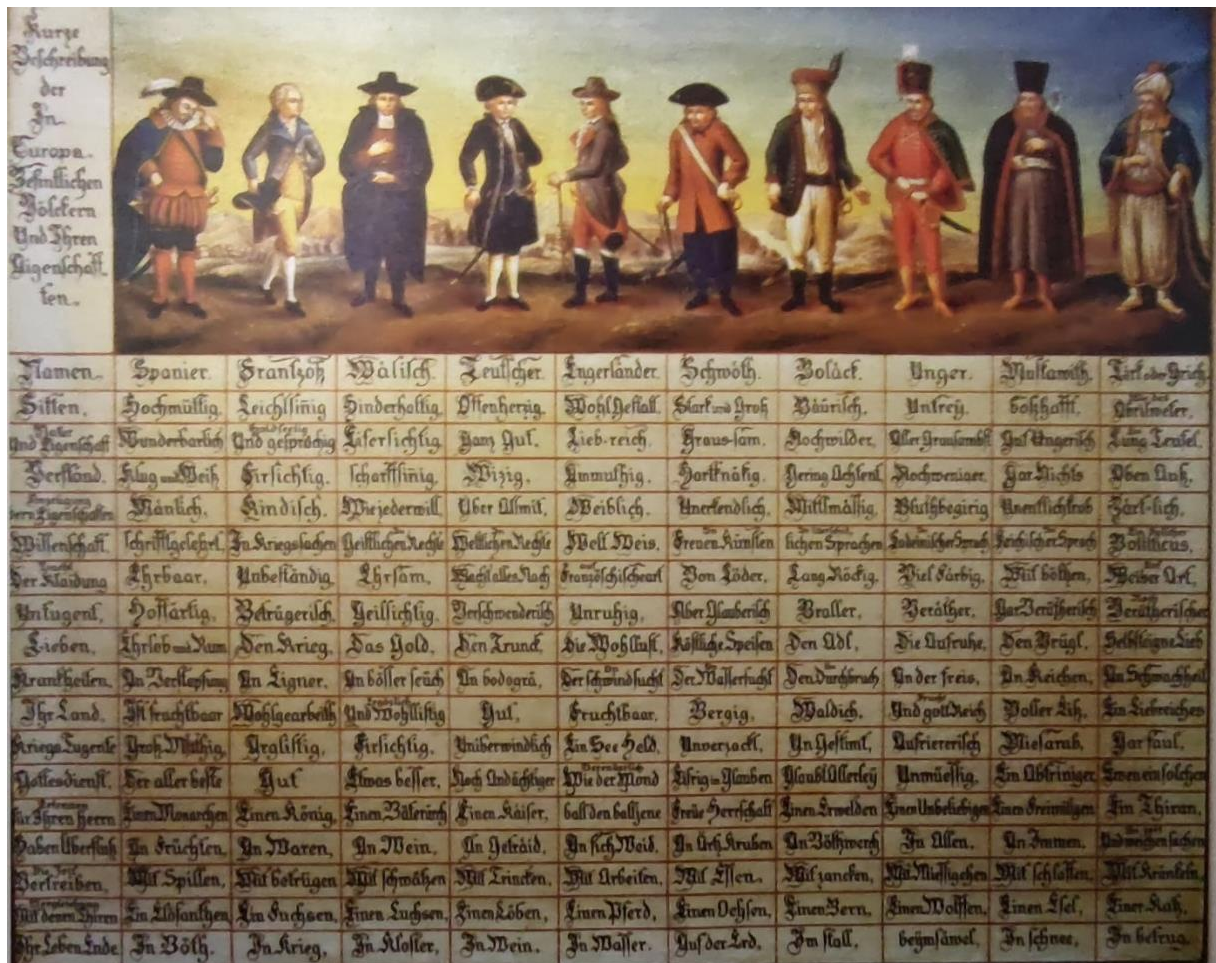 Kurze
Beschreibung
der
In
Europa
Befintlichen
Völckern
Und Ihren
Aigenschaff
ten.
Namen. Spanier. Frantzoß Wälisch. Teutscher. Engerländer. Schwöth. Boläck. Unger. Muskawith. Tirk oder Griech.
Sitten, Hochmüttig, Leichtsinig Hinderhaltig, Offenherzig, Wohl Gestalt, Starck und Groß Bäurisch, Untrey, boßhafft, Abrilweter,
Natur Und Eigenschaft Wunderbarlich Und gesprächig Eifersichtig, Ganz Gut, Lieb-reich, Graus-sam, Nochwilder, Aller Graussambst, Gut Ungerisch Lung Teufel,
Verstand, Klug und Weiß Firsichtig, scharffsinig, Wizig, Ammuthig, Hartknäkig, Gering Achtent, Nochweniger, Gar Nichts Oben Auß,
Eigenschaften Mänlich, Kindisch, Wie jederwill, Über Allmit, Weiblich, Unerkendlich, Mittlmässig, Bluthbegirig Unentlichkrob Zärt-lich,
Wissenschaft, schrifftgelehrt, In Kriegssachen Geistlichen Rechte Weltlichen Rechte Welt Weis, Freyen Künsten lichen Sprachen Ladeinischer Sprach Krichischer Sprach Bolliticus,
Der Klaidung Ehrbaar, Unbeständig Ehrsam, Macht alles Nach Französchischeart Von Löder, Lang Röckig, Viel Färbig, Mit bölzen, Weiber Art,
Untugent, Hoffärtig, Betrügerisch, Geillsichtig, Verschwenderisch Unruhig, Aber Glauberisch Braller, Veräther, Gar Verätherisch Verätherischer
Lieben, Ehrlob und Rum Den Krieg, Das Gold, Den Trunck, Die Wohllust, Köstliche Speisen Den Adl, Die Aufruhe, Den Brügl, Selbsteigne Lieb
Krankheiten, An Verstopfung An Eigner, An bösser seüch An bodogrä, Der schwindsucht Der Wassersucht Den Durchbruch An der freis, An Keichen, An Schwachheit
Ihr Land, Ist fruchtbaar Wohlgearbeith Und Wohllistig Gut, Fruchtbaar, Bergig, Waldich, Und golt Reich Voller Eiß, Ein Liebreiches
Kriegs Tugente Groß Müthig, Arglistig, Firsichtig, Uniberwindlich Ein See Held, Unverzackt, Un Gestimt, Aufriererisch Miesamb, Gar faul,
Gottesdienst, Der aller beste Gut Etwas besser, Noch Andächtiger Wie der Mond Eifrig in Glauben Glaubt Allerley Unmüessig, Ein Abtriniger Ewen ein solchen
für Ihren Herrn Einen Monarchen Einen König, Einen Bäterärch Einen Käiser, balt den balt jene Freüe Herrschaft Einen Erwelden Einen Unbeliebigen Einen Freimilligen Ein Thiran,
Haben Überfluß An Früchten, An Waren, An Wein, An Geträid, An fich Weid, An Ärtz Kruben An Böltzwerch In Allen, An Immen, Und weichen sachen
Vertreiben, Mit Spillen, Mit betrügen Mit schwätzen Mit Trincken, Mit Arbeiten, Mit Essen, Mit zancken, Mit Miessigehen Mit schlaffen, Mit Kränkeln,
Mit denen Thiren Ein Elöfanthen, Ein Fuchsen, Einen Luchsen, Einen Löben, Einen Pferd, Einen Ochsen, Einen Bern, Einen Wolffen, Einen Esel, Einer Katz,
Ihr Leben Ende In Böth, In Krieg, In Kloster, In Wein, In Wasser, Auf der Erd, Im stall, beym säwel, In schnee, In betrug,